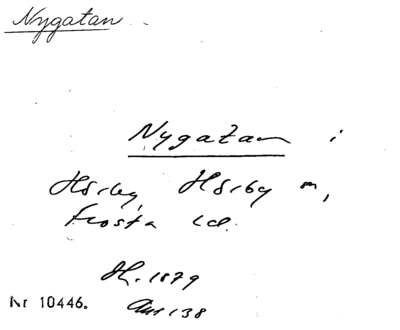 Nygatan
Nygatan i
Hörby, Hörby sn,
Frosta hd.
H. 1879
Nr 10446.